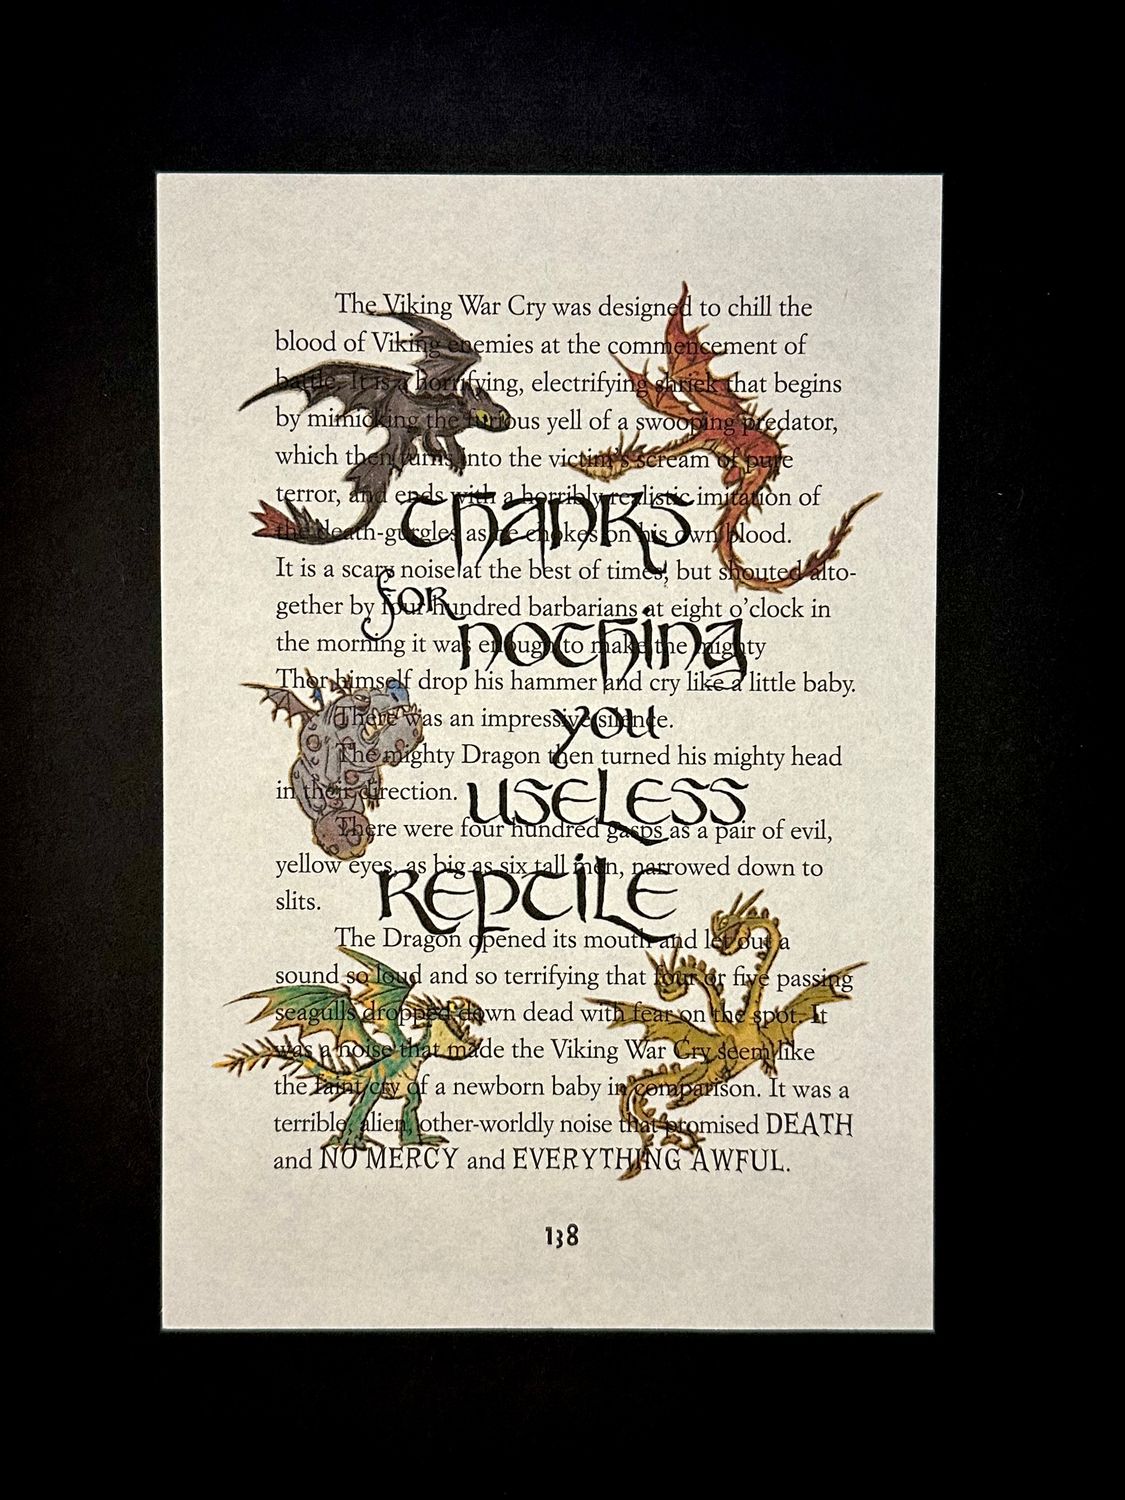 The Viking War Cry was designed to chill the
blood of Viking enemies at the commencement of
battle. It is a horrifying, electrifying shriek that begins
by mimicking the furious yell of a swooping predator,
which then turns into the victim's scream of pure
terror, and ends with a horribly realistic imitation of
thanks
the death-gurgles as he chokes on his own blood.
It is a scary noise at the best of times, but shouted alto-
for
gether by four hundred barbarians at eight o'clock in
nothing
the morning it was enough to make the mighty
Thor himself drop his hammer and cry like a little baby.
There was an impressive silence.
you
The mighty Dragon then turned his mighty head
in their direction.
useless
There were four hundred gasps as a pair of evil,
yellow eyes, as big as six tall men, narrowed down to
reptile
slits.
The Dragon opened its mouth and let out a
sound so loud and so terrifying that four or five passing
seagulls dropped down dead with fear on the spot. It
was a noise that made the Viking War Cry seem like
the faint cry of a newborn baby in comparison. It was a
terrible, alien, other-worldly noise that promised DEATH
and NO MERCY and EVERYTHING AWFUL.
138